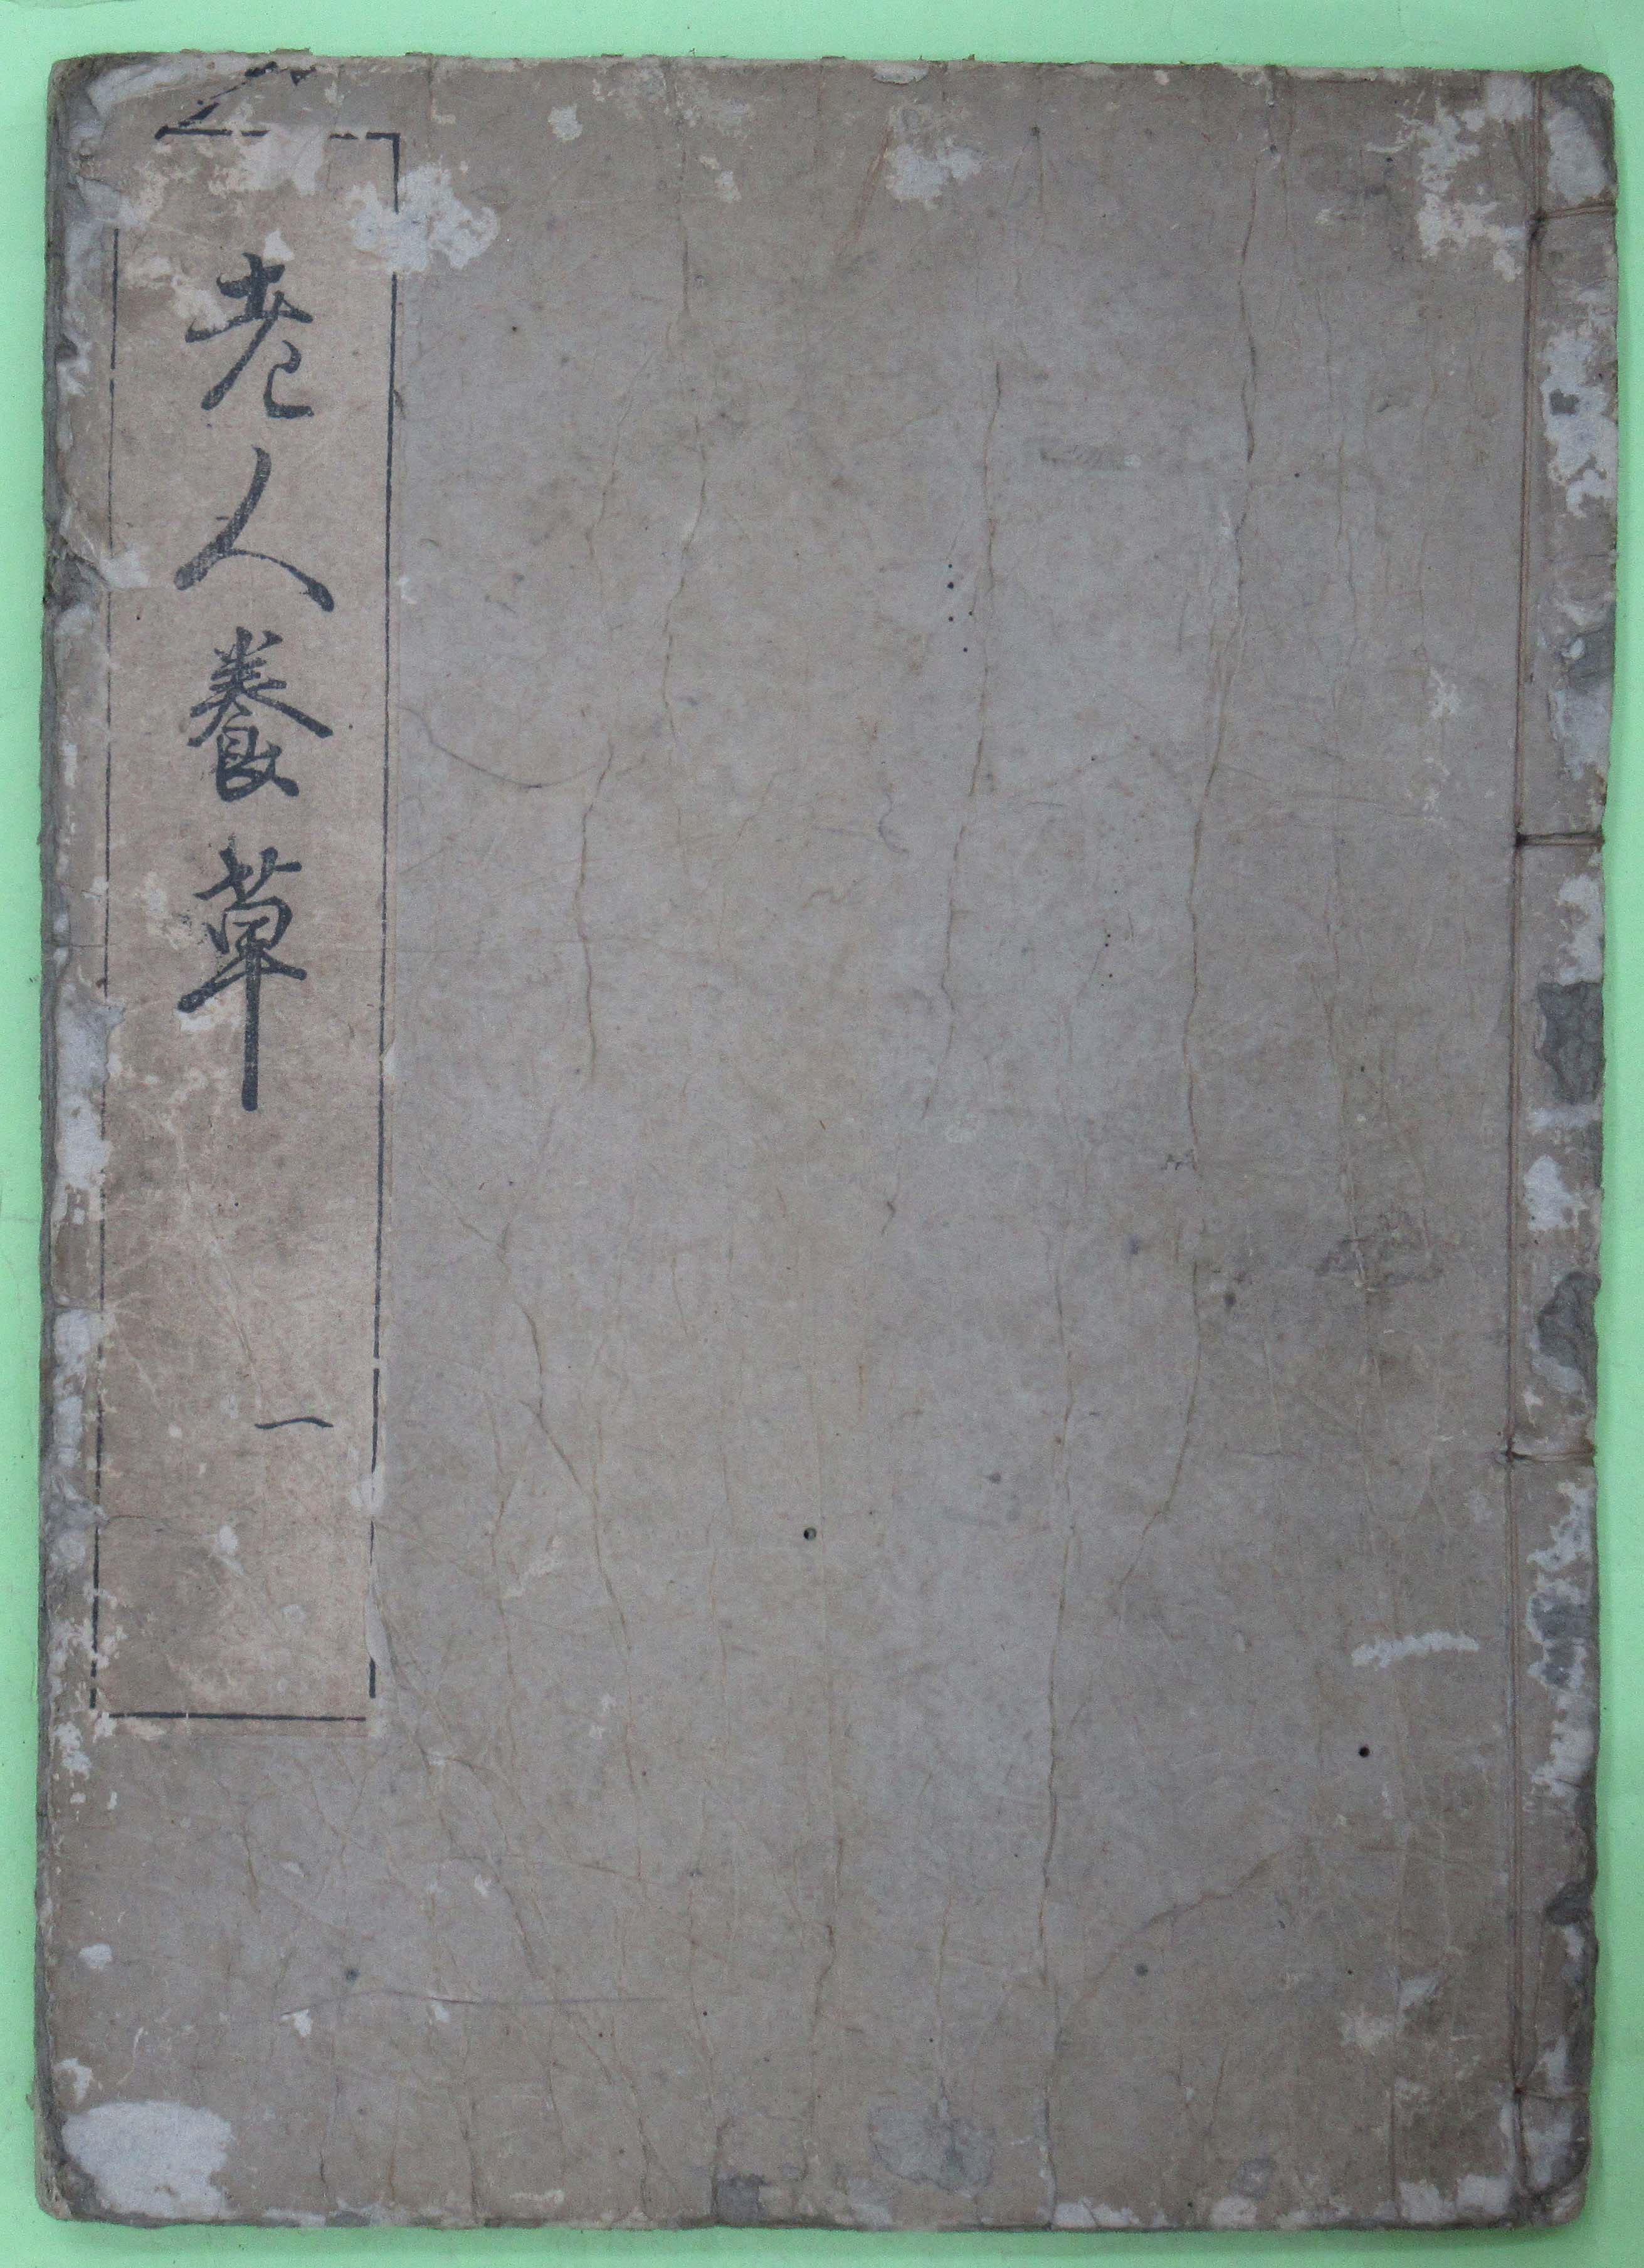 老人養草
一